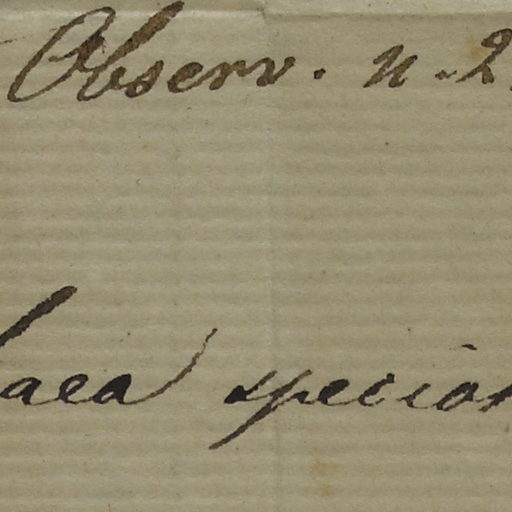 Observ. n. 2
aea specios